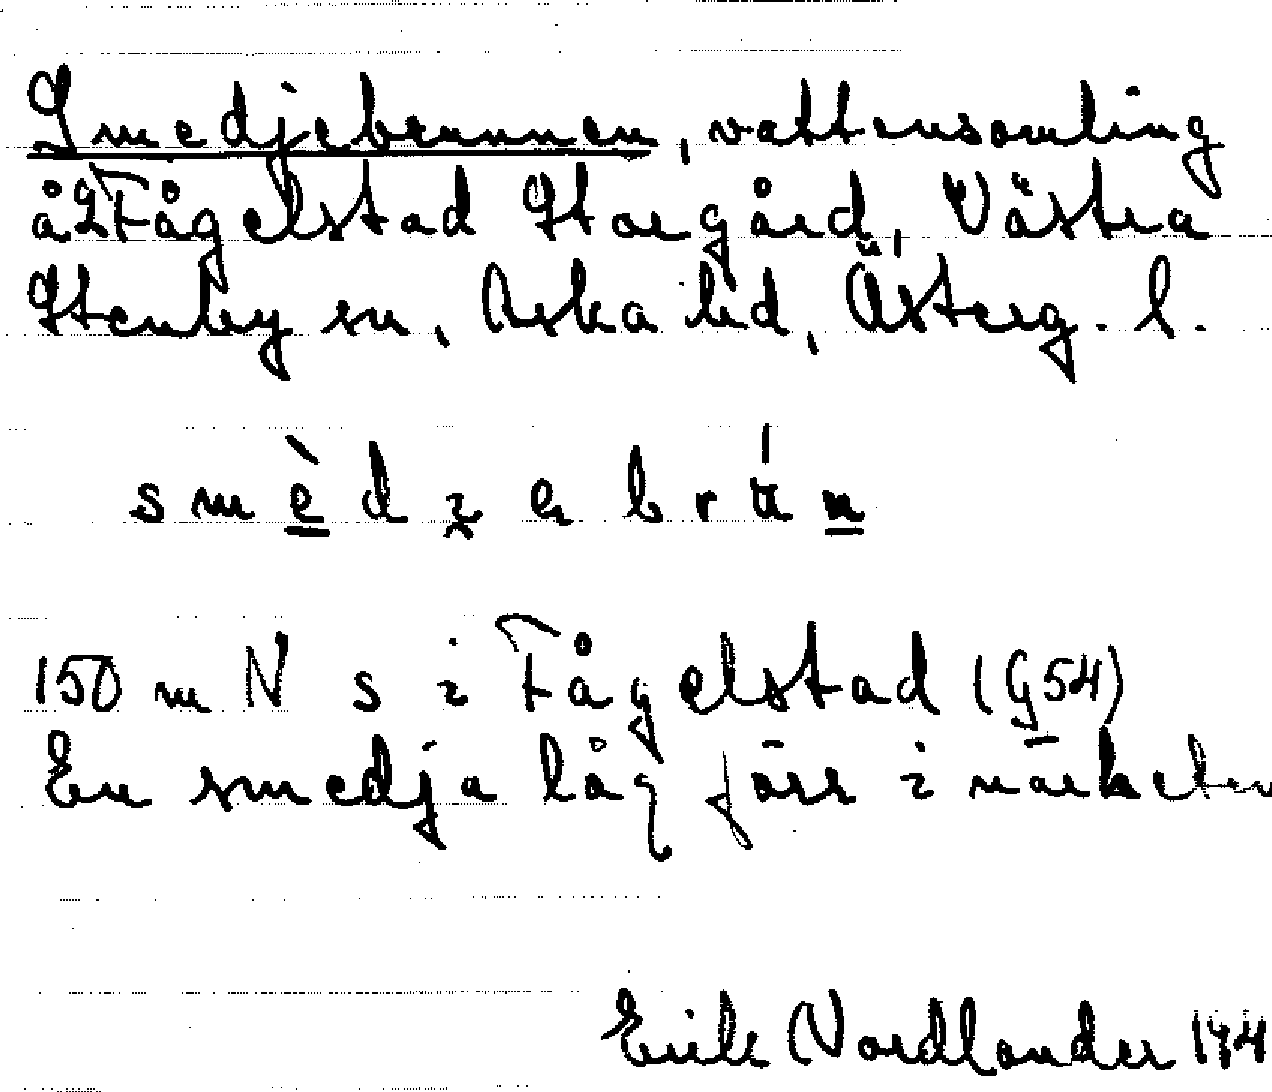 Smedjebrunnen, vattensamling
å Fågelstad Storgård, Västra
Stenby sn, Aska hd, Österg. l.
smèdzebrún
150 m N s i Fågelstad (G54)
En smedja låg förr i närheten
Erik Nordlander